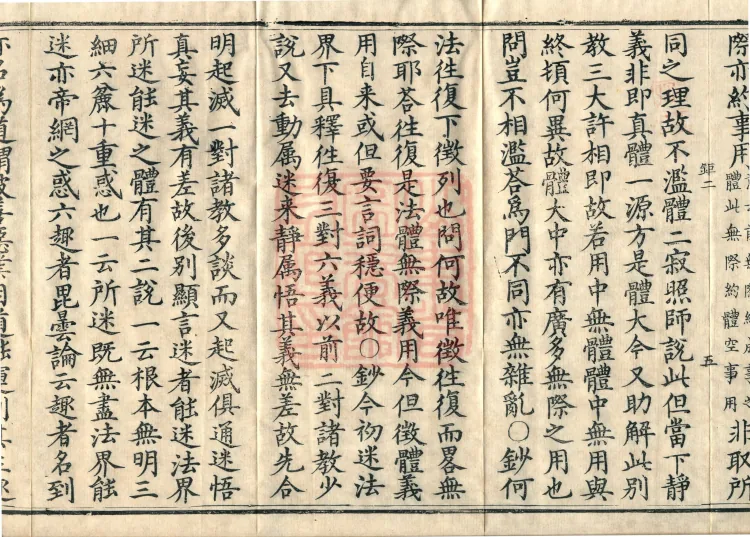 際亦約事用
體此無際約體空事用
非取所
鉅二
五
同之理故不濫體二寂照師說此但當下靜
義非即真體一源方是體大今又助解此別
教三大許相即故若用中無體體中無用與
終頓何異故體大中亦有廣多無際之用也
問豈不相濫荅爲門不同亦無雜亂〇鈔何
法往復下徵列也問何故唯徵往復而畧無
際耶荅往復是法體無際義用今但徵體義
用自来或但要言詞穩便故〇鈔今初迷法
界下具釋往復三對六義以前二對諸教少
說又去動属迷来靜属悟其義無差故先合
明起滅一對諸教多談而又起滅俱通迷悟
真妄其義有差故後別顯言迷者能迷法界
所迷能迷之體有其二說一云根本無明三
細六麄十重惑也一云所迷既無盡法界能
迷亦帝網之惑六趣者毘曇論云趣者名到